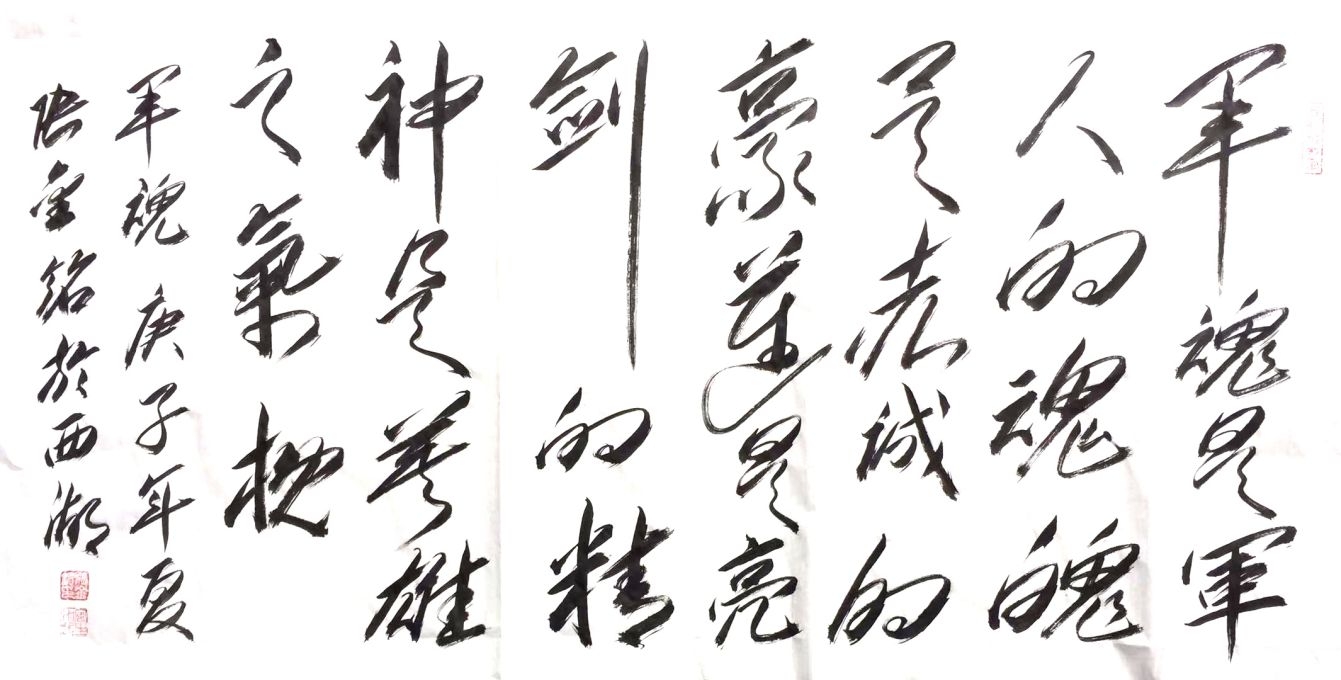 军魂是軍
人的魂魄
是赤诚的
豪邁是亮
剑的精
神是英雄
之氣概
军魂 庚子年夏
张金铭於西湖